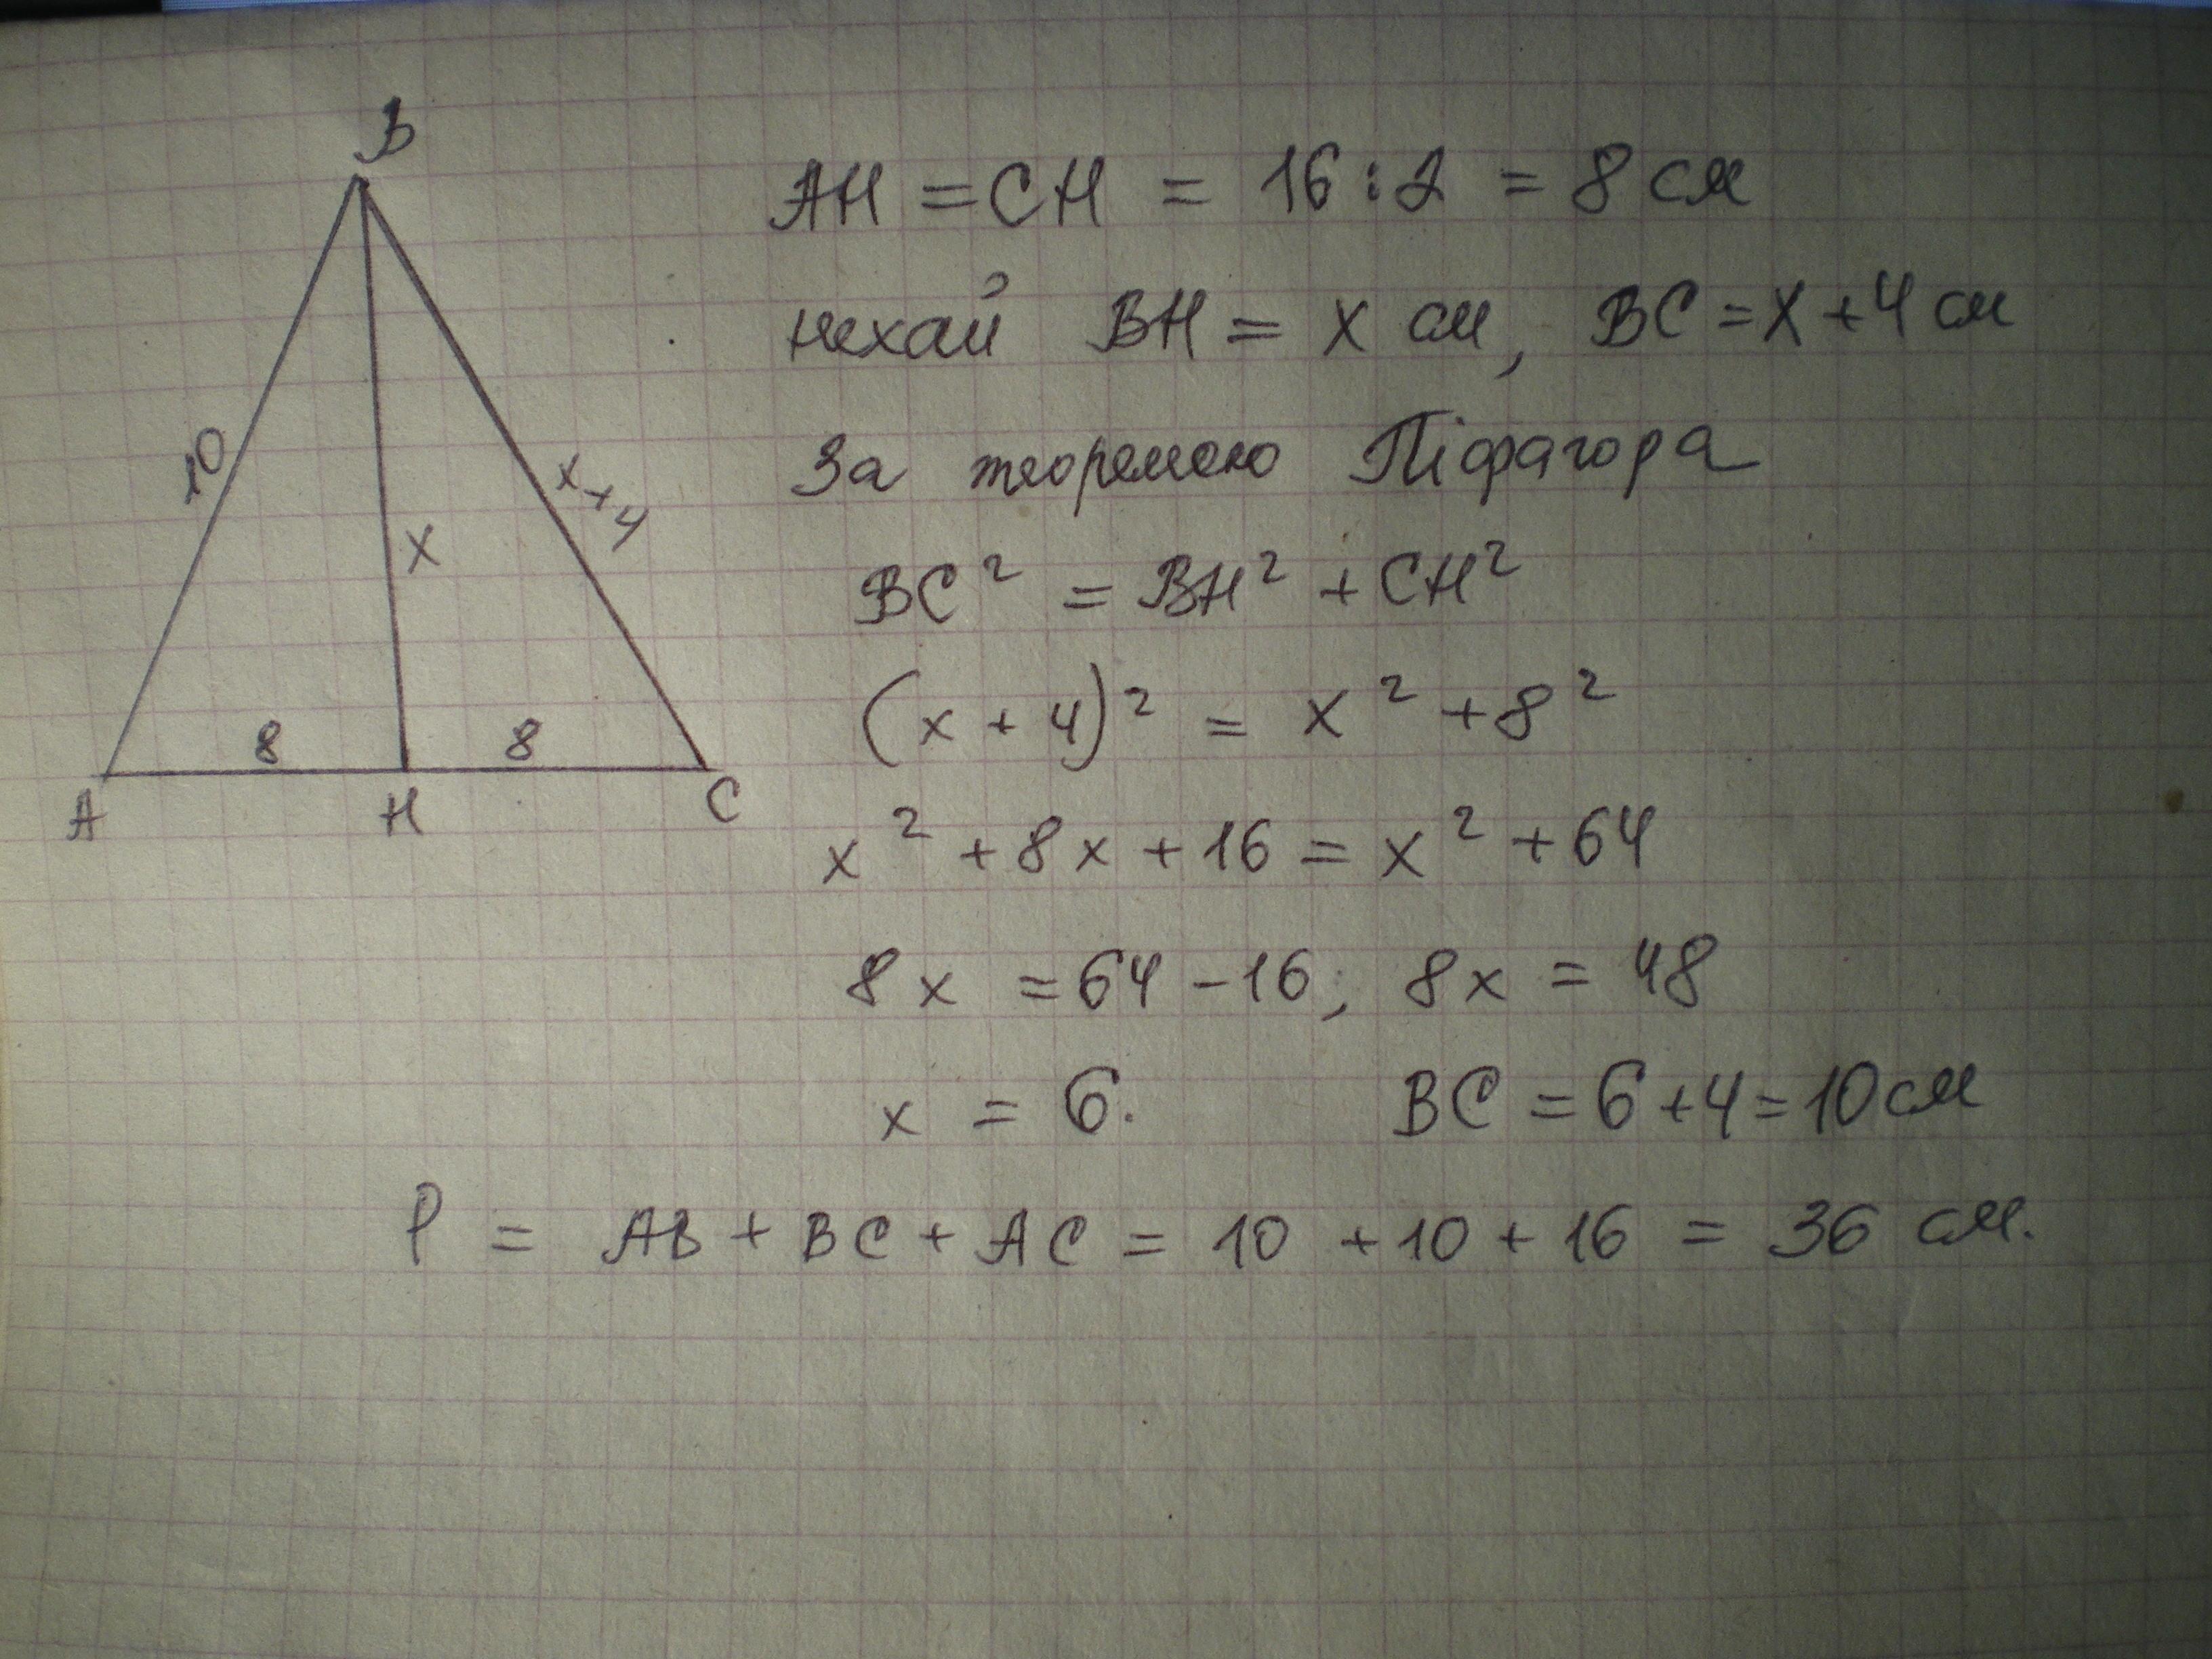 B
10
x
x+4
8
8
A
H
C
AH = CH = 16 : 2 = 8 см
нехай BH = x см, BC = x + 4 см
За теоремою Піфагора
BC² = BH² + CH²
(x + 4)² = x² + 8²
x² + 8x + 16 = x² + 64
8x = 64 - 16; 8x = 48
x = 6. BC = 6 + 4 = 10 см
P = AB + BC + AC = 10 + 10 + 16 = 36 см.